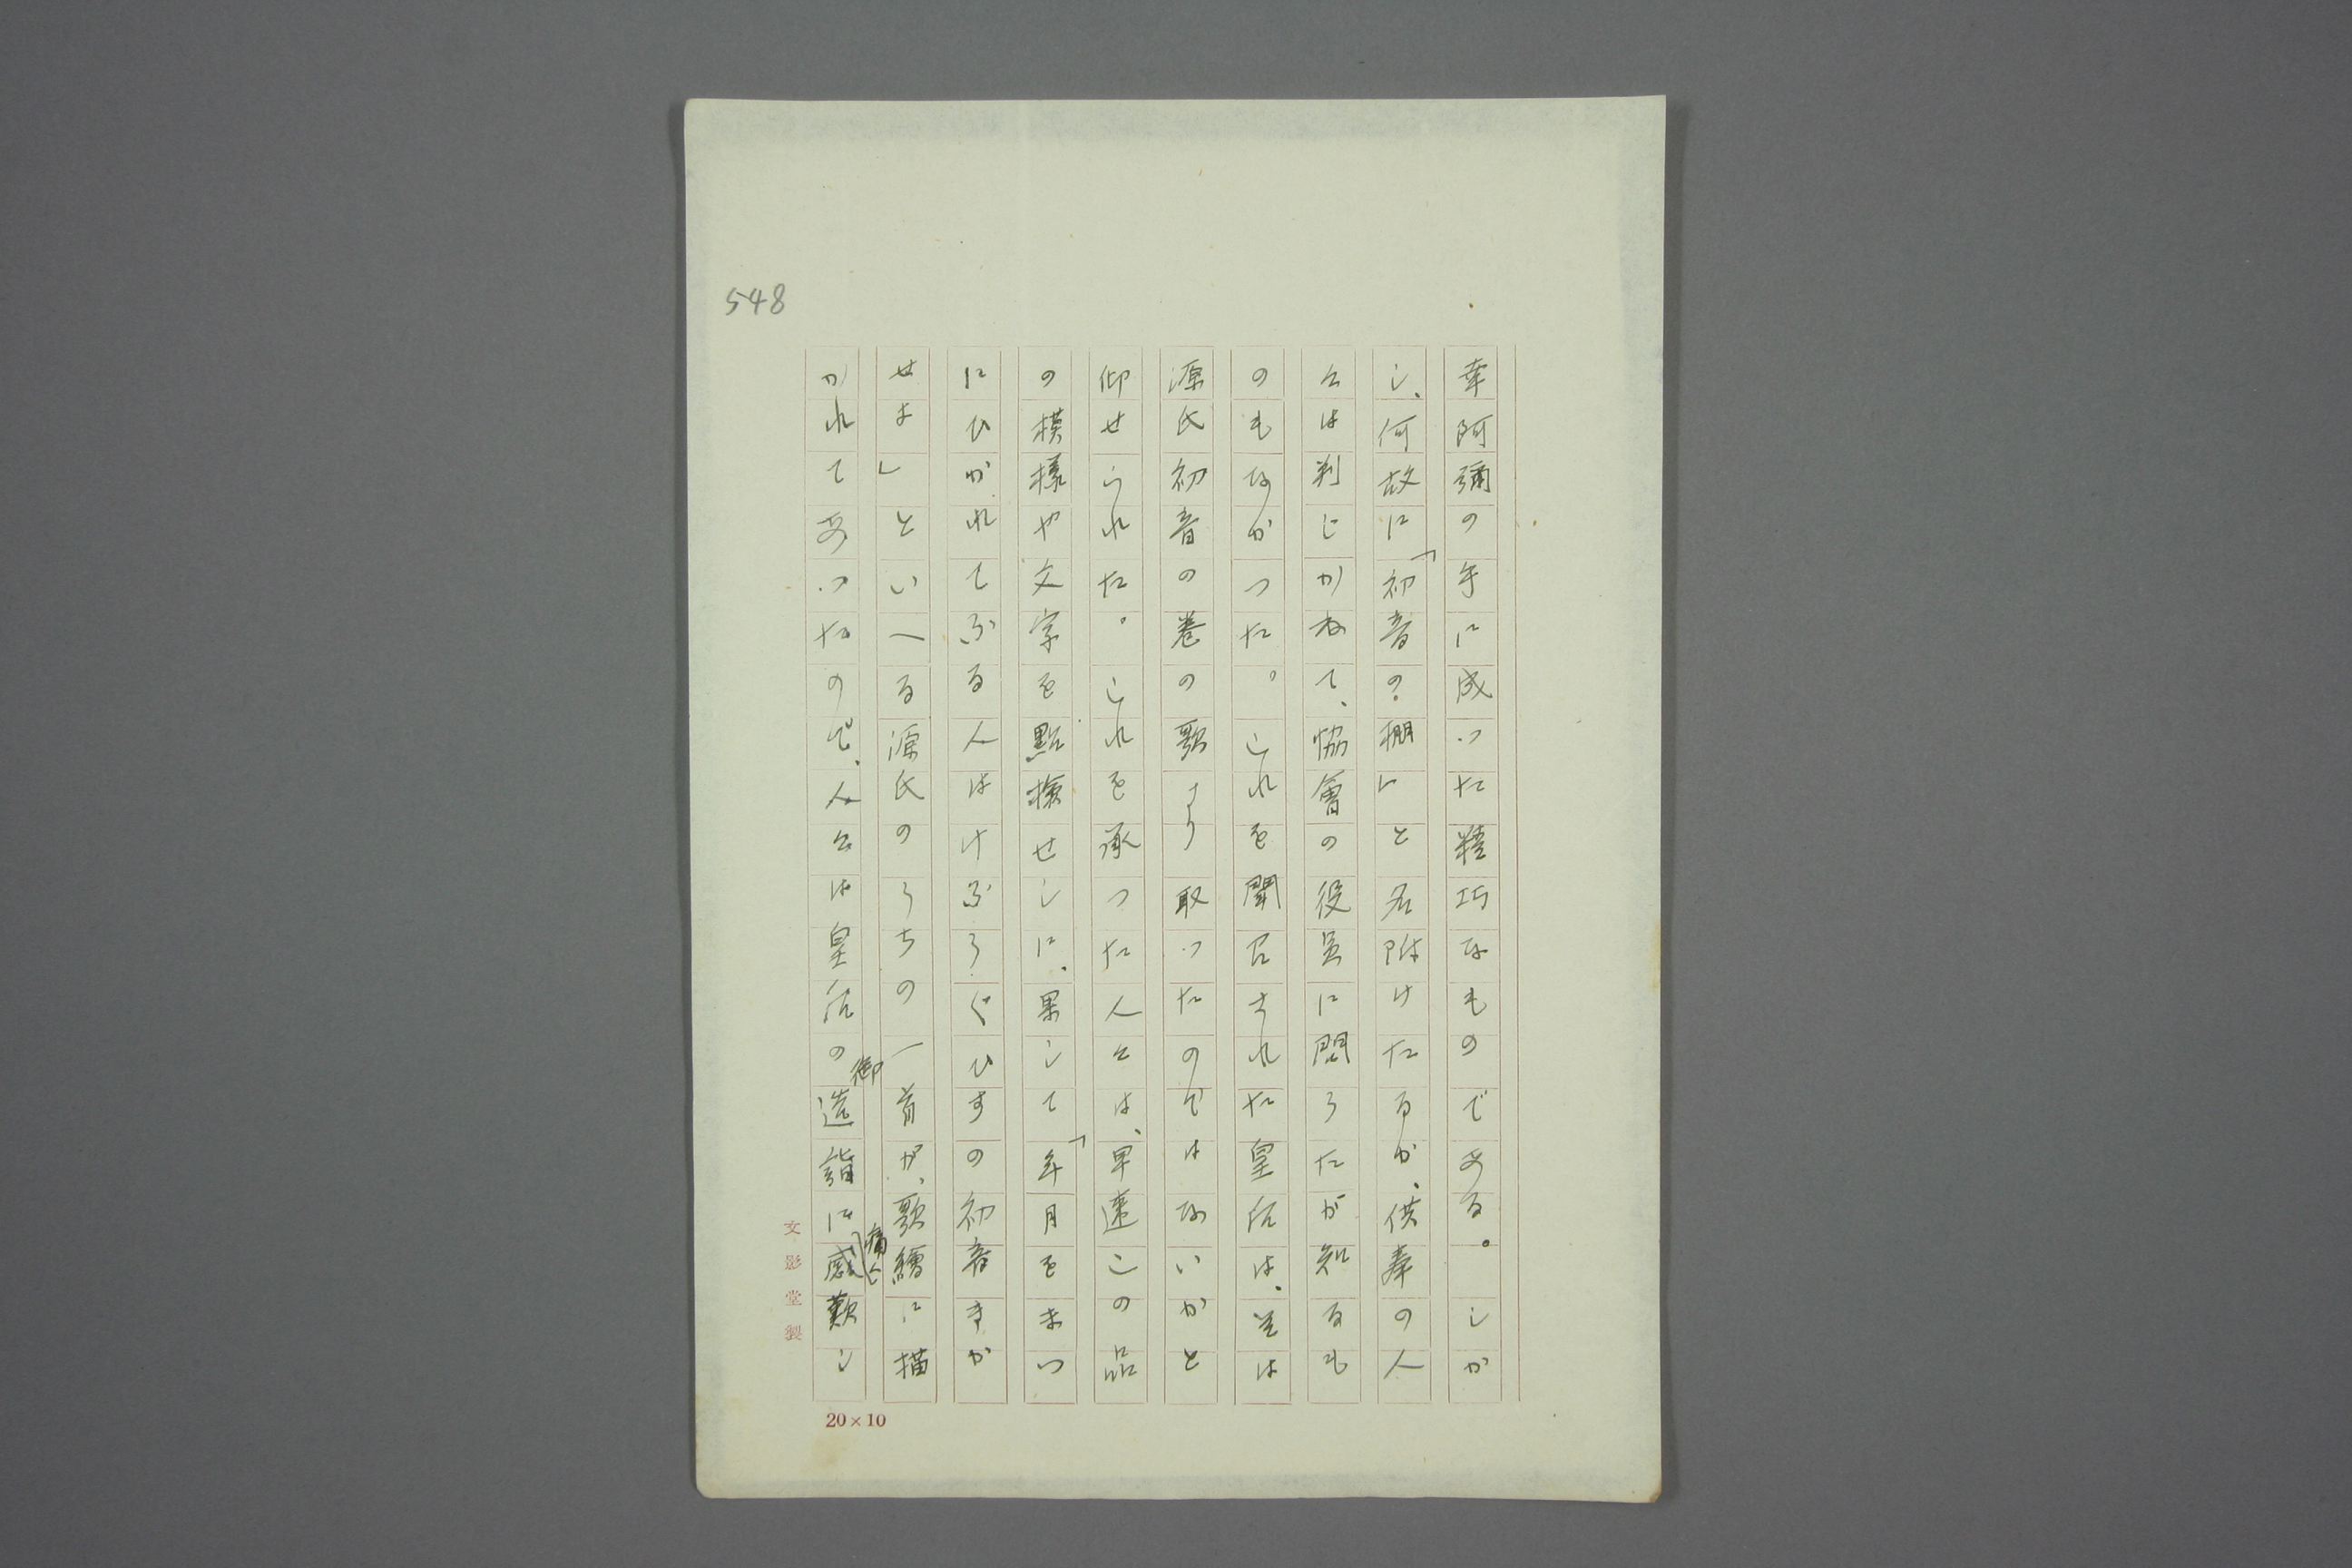 548
幸阿彌の手に成つた精巧なものである。しか
し、何故に「初音の棚」と名附けたるか、供奉の人
々は判じかねて、協會の役員に問うたが知るも
のもなかつた。これを聞召された皇后は、並は
源氏初音の巻の歌より取つたのではないかと
仰せられた。これを承つた人々は、早速この品
の模様や文字を點檢せしに、果して「年月をまつ
にひかれてふる人はけふうぐひすの初音きか
せよ」といへる源氏のうちの一首が、歌繪に描
かれてあつたので、人々は皇后の御造詣に痛く感歎し
文影堂製
20×10